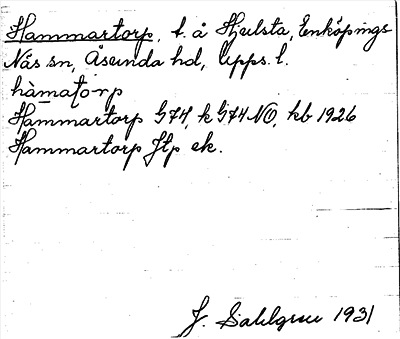 Hammartorp, t. å Hjulsta, Enköpings
Näs sn, Åsunda hd, Upps. l.
hàmato̱rp
Hammartorp G74, k G74 NO, kb 1926
Hammartorp Jtp ek.
J. Sahlgren 1931